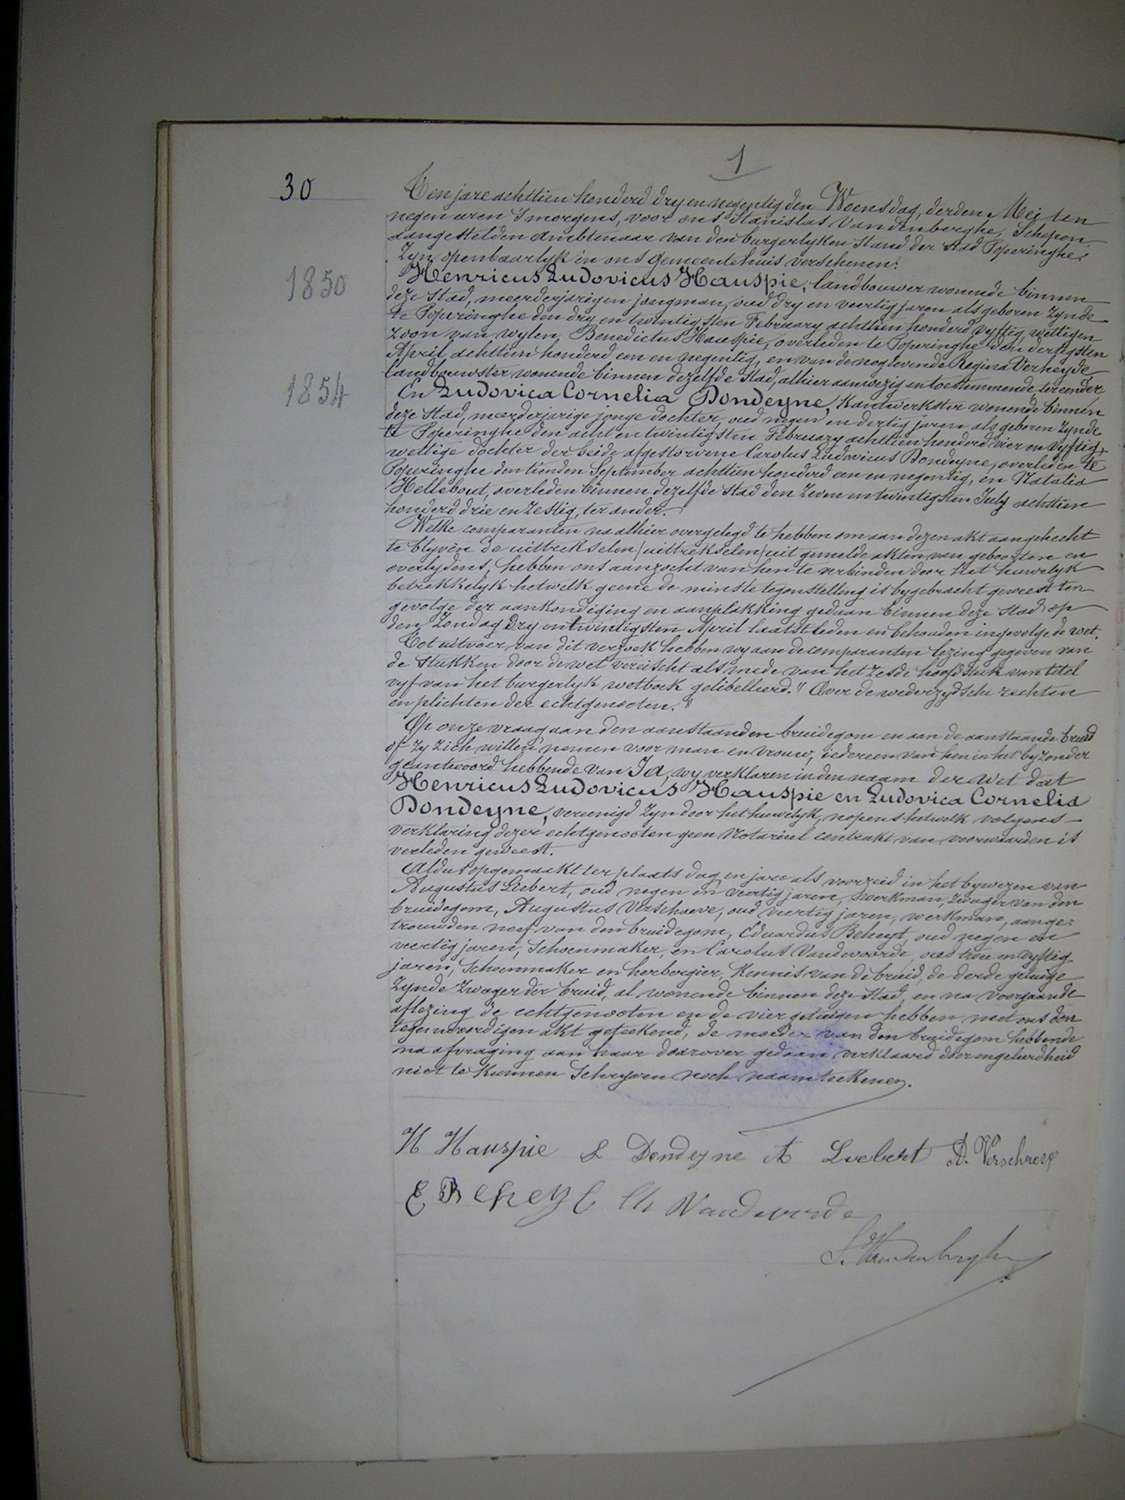 1
30
Ten jare achttien honderd dry en negentig den Woensdag, derden Mei ten
negen uren 's morgens, voor ons Stanislas Vandenberghe, Schepen
aangestelden ambtenaar van den burgerlyken Stand der stad Poperinghe,
Zyn openbaarlyk in ons gemeentehuis verschenen:
1850
Henricus Ludovicus Hauspie, landbouwer wonende binnen
deze Stad, meerderjarigen jongman, oud dry en veertig jaren als geboren Zynde
te Poperinghe den dry en twintigsten February achttien honderd vyftig, wettigen
zoon van wylen Benedictus Hauspie, overleden te Poperinghe den dertigsten
April achttien honderd een en negentig, en van de nog levende Regina Verheyde
landbouwster wonende binnen dezelfde Stad, alhier aanwezig en toestemmende ter eender
1854
En Ludovica Cornelia Dondeyne, Kantwerkster wonende binnen
deze Stad, meerderjarige jonge dochter, oud negen en dertig jaren als geboren Zynde
te Poperinghe den acht en twintigsten February achttien honderd vier en vyftig,
wettige dochter der beide afgestorvene Carolus Ludovicus Dondeyne, overleden te
Poperinghe den tienden September achttien honderd een en negentig, en Natalia
Hellebout, overleden binnen dezelfde Stad den Zeven en twintigsten July achttien
honderd drie en Zestig, ter ander.
Welke comparanten na alhier overgelegd te hebben om aan dezen akt aangehecht
te blyven de uitbrekselen /uittrekselen/ uit gemelde akten van geboorten en
overlydens, hebben ons aanzocht van hen te verbinden door het huwelyk
betrekkelyk hetwelk geene de minste tegenstelling is bygebracht geweest ten
gevolge der aankondiging en aanplakking gedaan binnen deze Stad op
den Zondag dry en twintigsten April laatstleden en behouden ingevolge de wet.
Tot uitvoer van dit verzoek hebben wy aan de comparanten lezing gegeven van
de Stukken door de wet vereischt als mede van het Zesde hoofdstuk van titel
vyf van het burgerlyk wetboek gelibelleerd: "Over de wederzydsche rechten
en plichten der echtgenooten."
Op onze vraag aan den aanstaanden bruidegom en aan de aanstaande bruid
of Zy Zich willen nemen voor man en vrouw, iedereen van hen in het byzonder
geantwoord hebbende van Ja, wy verklaren in den naam der wet dat
Henricus Ludovicus Hauspie en Ludovica Cornelia
Dondeyne, vereenigd Zyn door het huwelyk, nopens hetwelk volgens
verklaring dezer echtgenooten geen Notarieel contrakt van voorwaarden is
verleden geweest.
Aldus opgemaakt ter plaats dag en jare als voorzeid in het bywezen van
Augustus Lebert, oud negen en veertig jaren, werkman, Zwager van den
bruidegom, Augustus Verschaeve, oud veertig jaren, werkman, aange-
trouwden neef van den bruidegom, Eduardus Beheyt, oud negen en
veertig jaren, Schoenmaker, en Carolus Vandevoorde, oud twee en vyftig
jaren, Schoenmaker en herbergier, Kennis van de bruid, de derde getuige
Zynde Zwager der bruid, al wonende binnen deze Stad, en na voorgaande
aflezing de echtgenooten en de vier getuigen hebben met ons den
tegenwoordigen akt geteekend, de moeder van den bruidegom hebbende
na afvraging aan haar daarover gedaan verklaard door ongeleerdheid
niet te kunnen Schryven noch naamteekenen.
H Hauspie L Dondeyne A Lvebert A. Verschaeve
E Beheyt Ch Vandevoorde
S. Vandenberghe